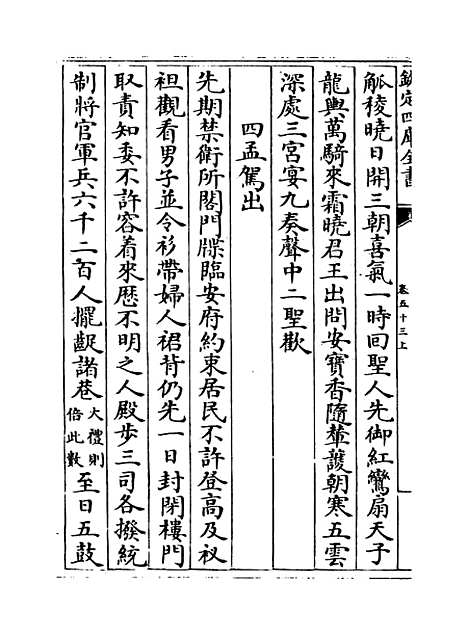 欽定四庫全書
卷五十三上
觚稜曉日開三朝喜氣一時回聖人先御紅鸞扇天子
龍輿萬騎來霜曉君王出問安寶香隨輦護朝寒五雲
深處三宮宴九奏聲中二聖歡
四孟駕出
先期禁衛所閤門牒臨安府約束居民不許登高及衩
袒觀看男子並令衫帶婦人裙背仍先一日封閉樓門
取責知委不許容着來歷不明之人殿步三司各撥統
制將官軍兵六千二百人擺齪諸巷大禮則倍此數至日五鼓